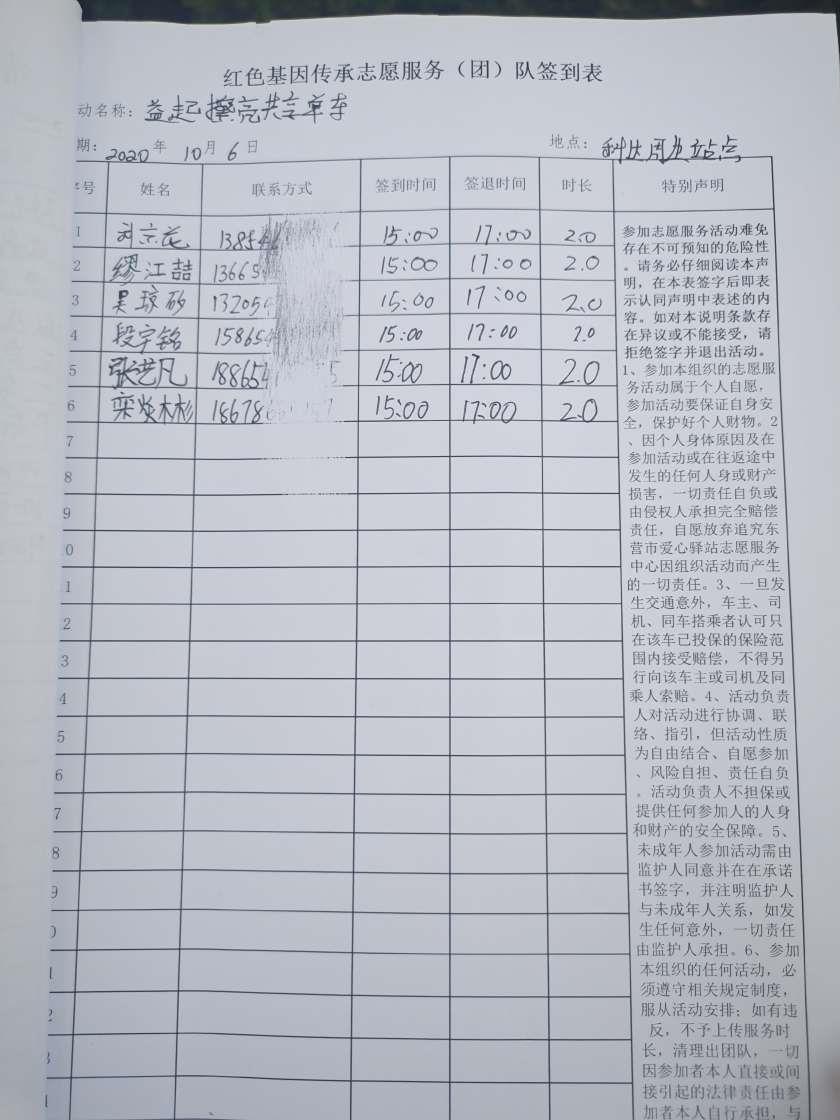 红色基因传承志愿服务（团）队签到表
动名称：益起擦亮共享单车
期：2020年 10月 6日 地点：
号 姓名 联系方式 签到时间 签退时间 时长 特别声明
1 刘宗花 13854 15:00 17:00 2.0
2 缪江喆 13665 15:00 17:00 2.0
3 吴琼 132054 15:00 17:00 2.0
4 段宇铭 158654 15:00 17:00 2.0
5 张艺凡 188654 15:00 17:00 2.0
6 栾 彬 18678 15:00 17:00 2.0
7
8
9
0
1
2
3
4
5
6
7
8
9
0
1
2
3
1
参加志愿服务活动难免
存在不可预知的危险性
。请务必仔细阅读本声
明，在本表签字后即表
示认同声明中表述的内
容。如对本说明条款存
在异议或不能接受，请
拒绝签字并退出活动。
1、参加本组织的志愿服
务活动属于个人自愿，
参加活动要保证自身安
全，保护好个人财物。2
、因个人身体原因及在
参加活动或在往返途中
发生的任何人身或财产
损害，一切责任自负或
由侵权人承担完全赔偿
责任，自愿放弃追究东
营市爱心驿站志愿服务
中心因组织活动而产生
的一切责任。3、一旦发
生交通意外，车主、司
机、同车搭乘者认可只
在该车已投保的保险范
围内接受赔偿，不得另
行向该车主或司机及同
乘人索赔。4、活动负责
人对活动进行协调、联
络、指引，但活动性质
为自由结合、自愿参加
、风险自担、责任自负
。活动负责人不担保或
提供任何参加人的人身
和财产的安全保障。5、
未成年人参加活动需由
监护人同意并在在承诺
书签字，并注明监护人
与未成年人关系，如发
生任何意外，一切责任
由监护人承担。6、参加
本组织的任何活动，必
须遵守相关规定制度，
服从活动安排；如有违
反，不予上传服务时
长，清理出团队，一切
因参加者本人直接或间
接引起的法律责任由参
加者本人自行承担，与